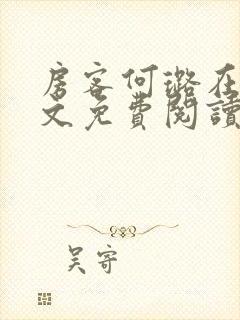 房客何璐在
文免費閱讀
吴寄